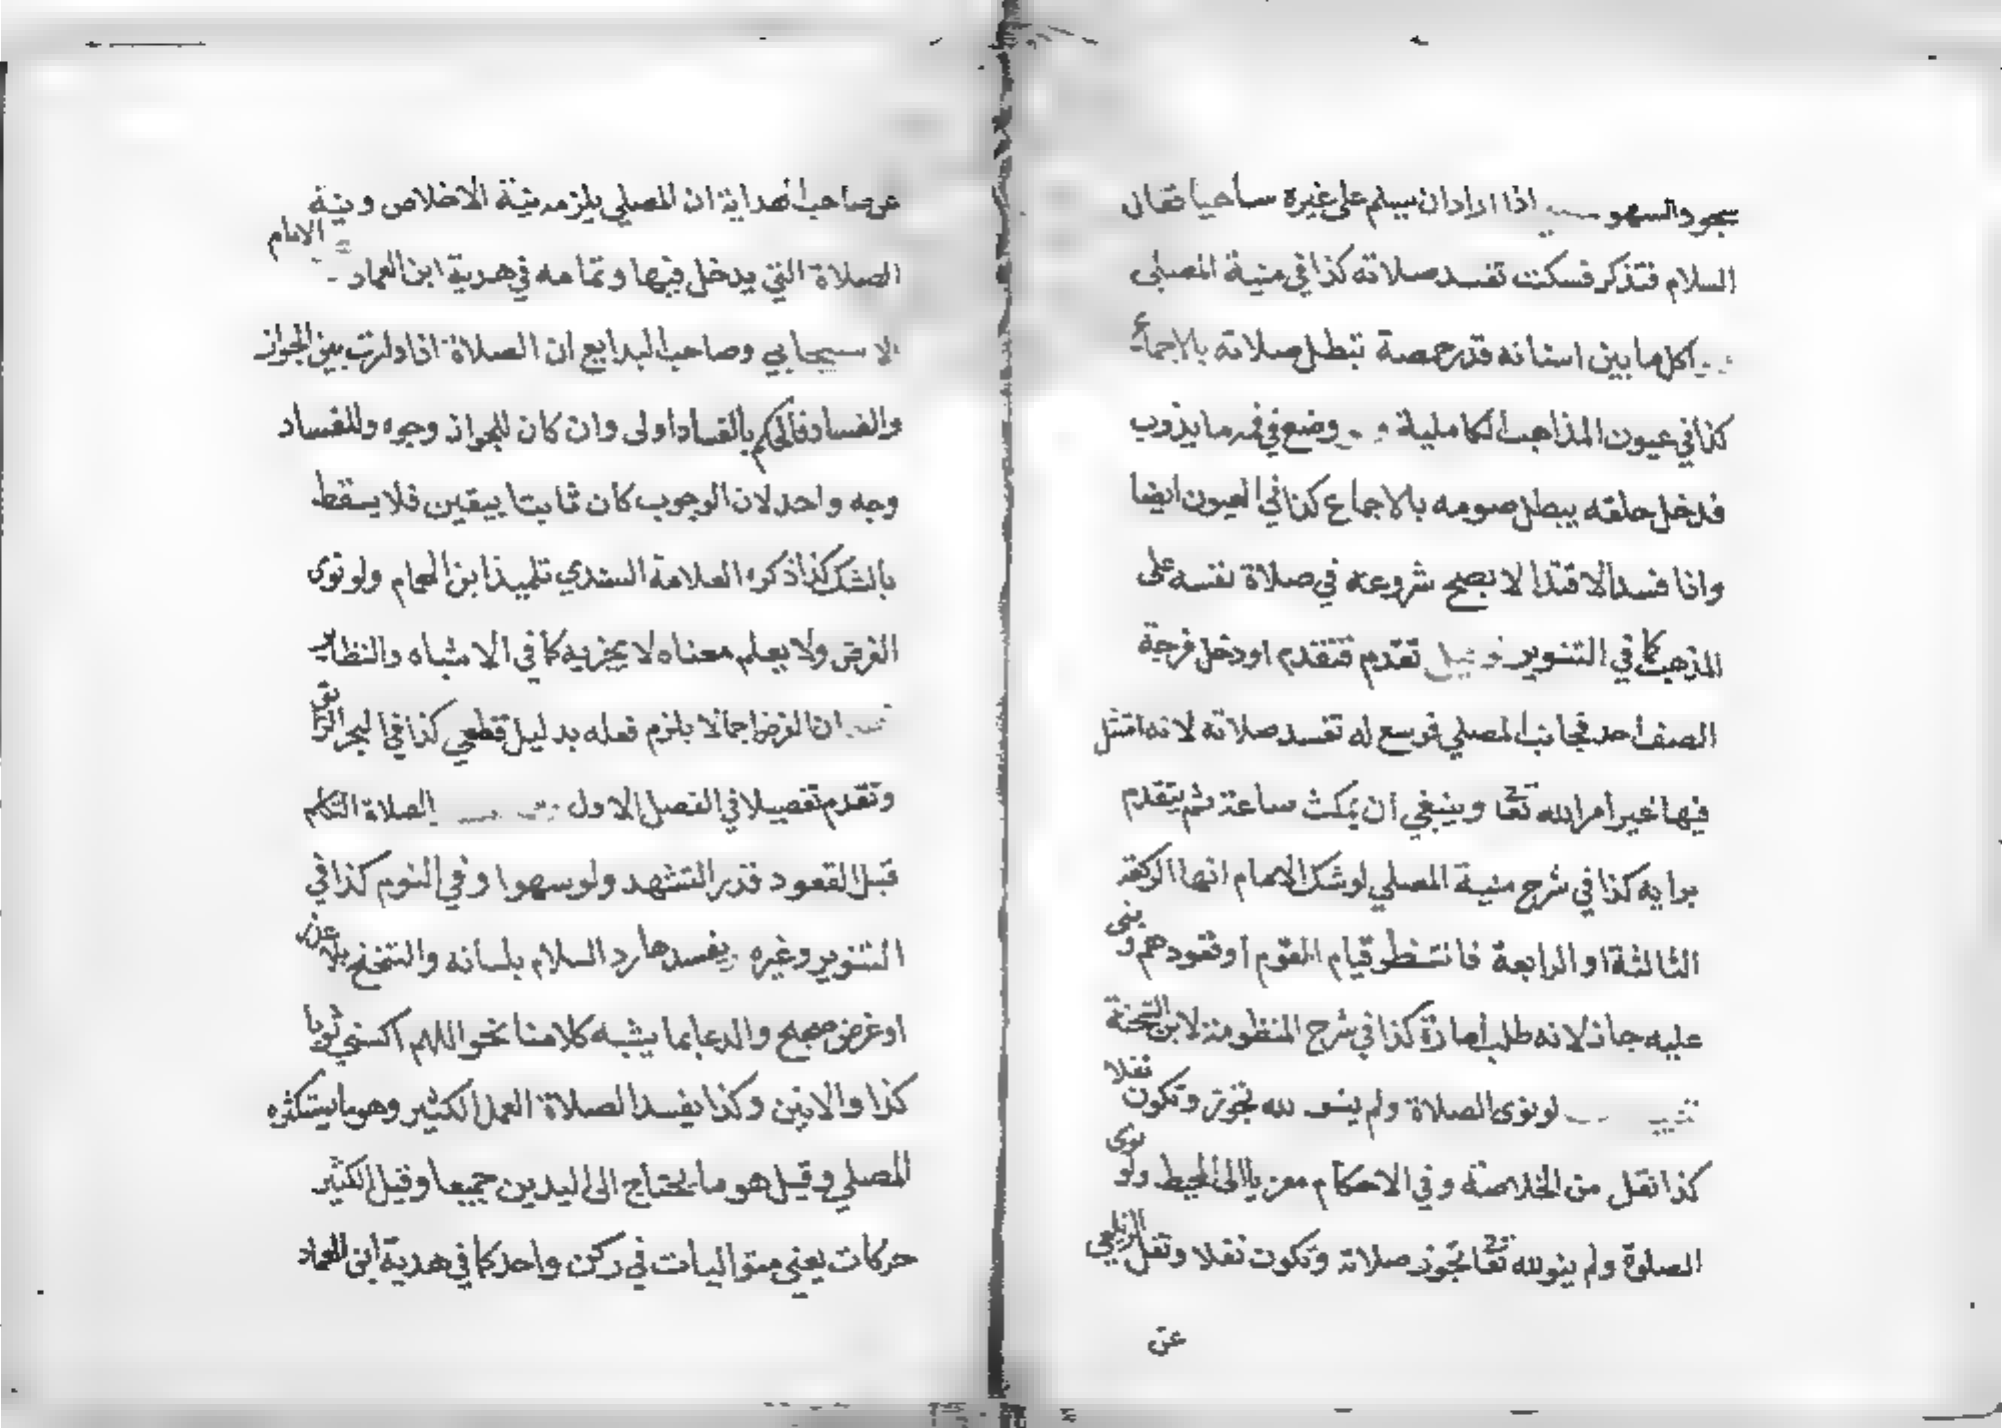 سجود السهو اذا اراد ان يسلم على غيره ساهيا فقال
السلام فتذكر فسكت تفسد صلاته كذا في منية المصلى
اكل ما بين اسنانه قدر حمصة تبطل صلاته بالاجماع
كذا في عيون المذاهب الكاملية وضع في فمه ما يذوب
فدخل حلقه يبطل صومه بالاجماع كذا في العيون ايضا
واذا فسد الاقتدا لا يصح شروعه في صلاة نفسه على
المذهب كما في التنوير قيل تقدم فتقدم او دخل فرجة
الصف احد فجانب المصلي فوسع له تفسد صلاته لانه امتثل
فيها غير امر الله تعا وينبغي ان يمكث ساعة ثم يتقدم
برايه كذا في شرح منية المصلي لو شك الامام انها الركعة
الثالثة او الرابعة فانتظر قيام القوم او قعودهم وبنى
عليه جاز لانه طلب امارة كذا في شرح المنظومة لابن الشحنة
لو نوى الصلاة ولم ينو لله تجوز وتكون نفلا
كذا نقل من الخلاصة وفي الاحكام معزيا الى المحيط ولو نوى
الصلوة ولم ينو لله تعا تجوز صلاته وتكون نفلا ونقل الزيلعي
عن
عن صاحب الهداية ان المصلي يلزمه نية الاخلاص ونية الامام
الصلاة التي يدخل فيها وتمامه في هدية ابن العماد
الاسبيجابي وصاحب البدايع ان الصلاة اذا دارت بين الجواز
والفساد فالحكم بالفساد اولى وان كان للجواز وجوه وللفساد
وجه واحد لان الوجوب كان ثابتا بيقين فلا يسقط
بالشك كذا ذكره العلامة السندي تلميذ ابن الهمام ولو نوى
الفرض ولا يعلم معناه لا يجزيه كما في الاشباه والنظاير
ان الفرض اجمالا يلزم فعله بدليل قطعي كذا في البحر الرايق
وتقدم تفصيلا في الفصل الاول الصلاة التكلم
قبل القعود قدر التشهد ولو سهوا وفي النوم كذا في
التنوير وغيره يفسدها رد السلام بلسانه والتنحنح بلا عذر
او غرض صحيح والدعا بما يشبه كلامنا نحو اللهم اكسني ثوبا
كذا والانين وكذا يفسد الصلاة العمل الكثير وهو ما يستكثره
المصلي وقيل هو ما يحتاج الى اليدين جميعا وقيل الكثير
حركات يعني متواليات في ركن واحد كما في هدية ابن العماد